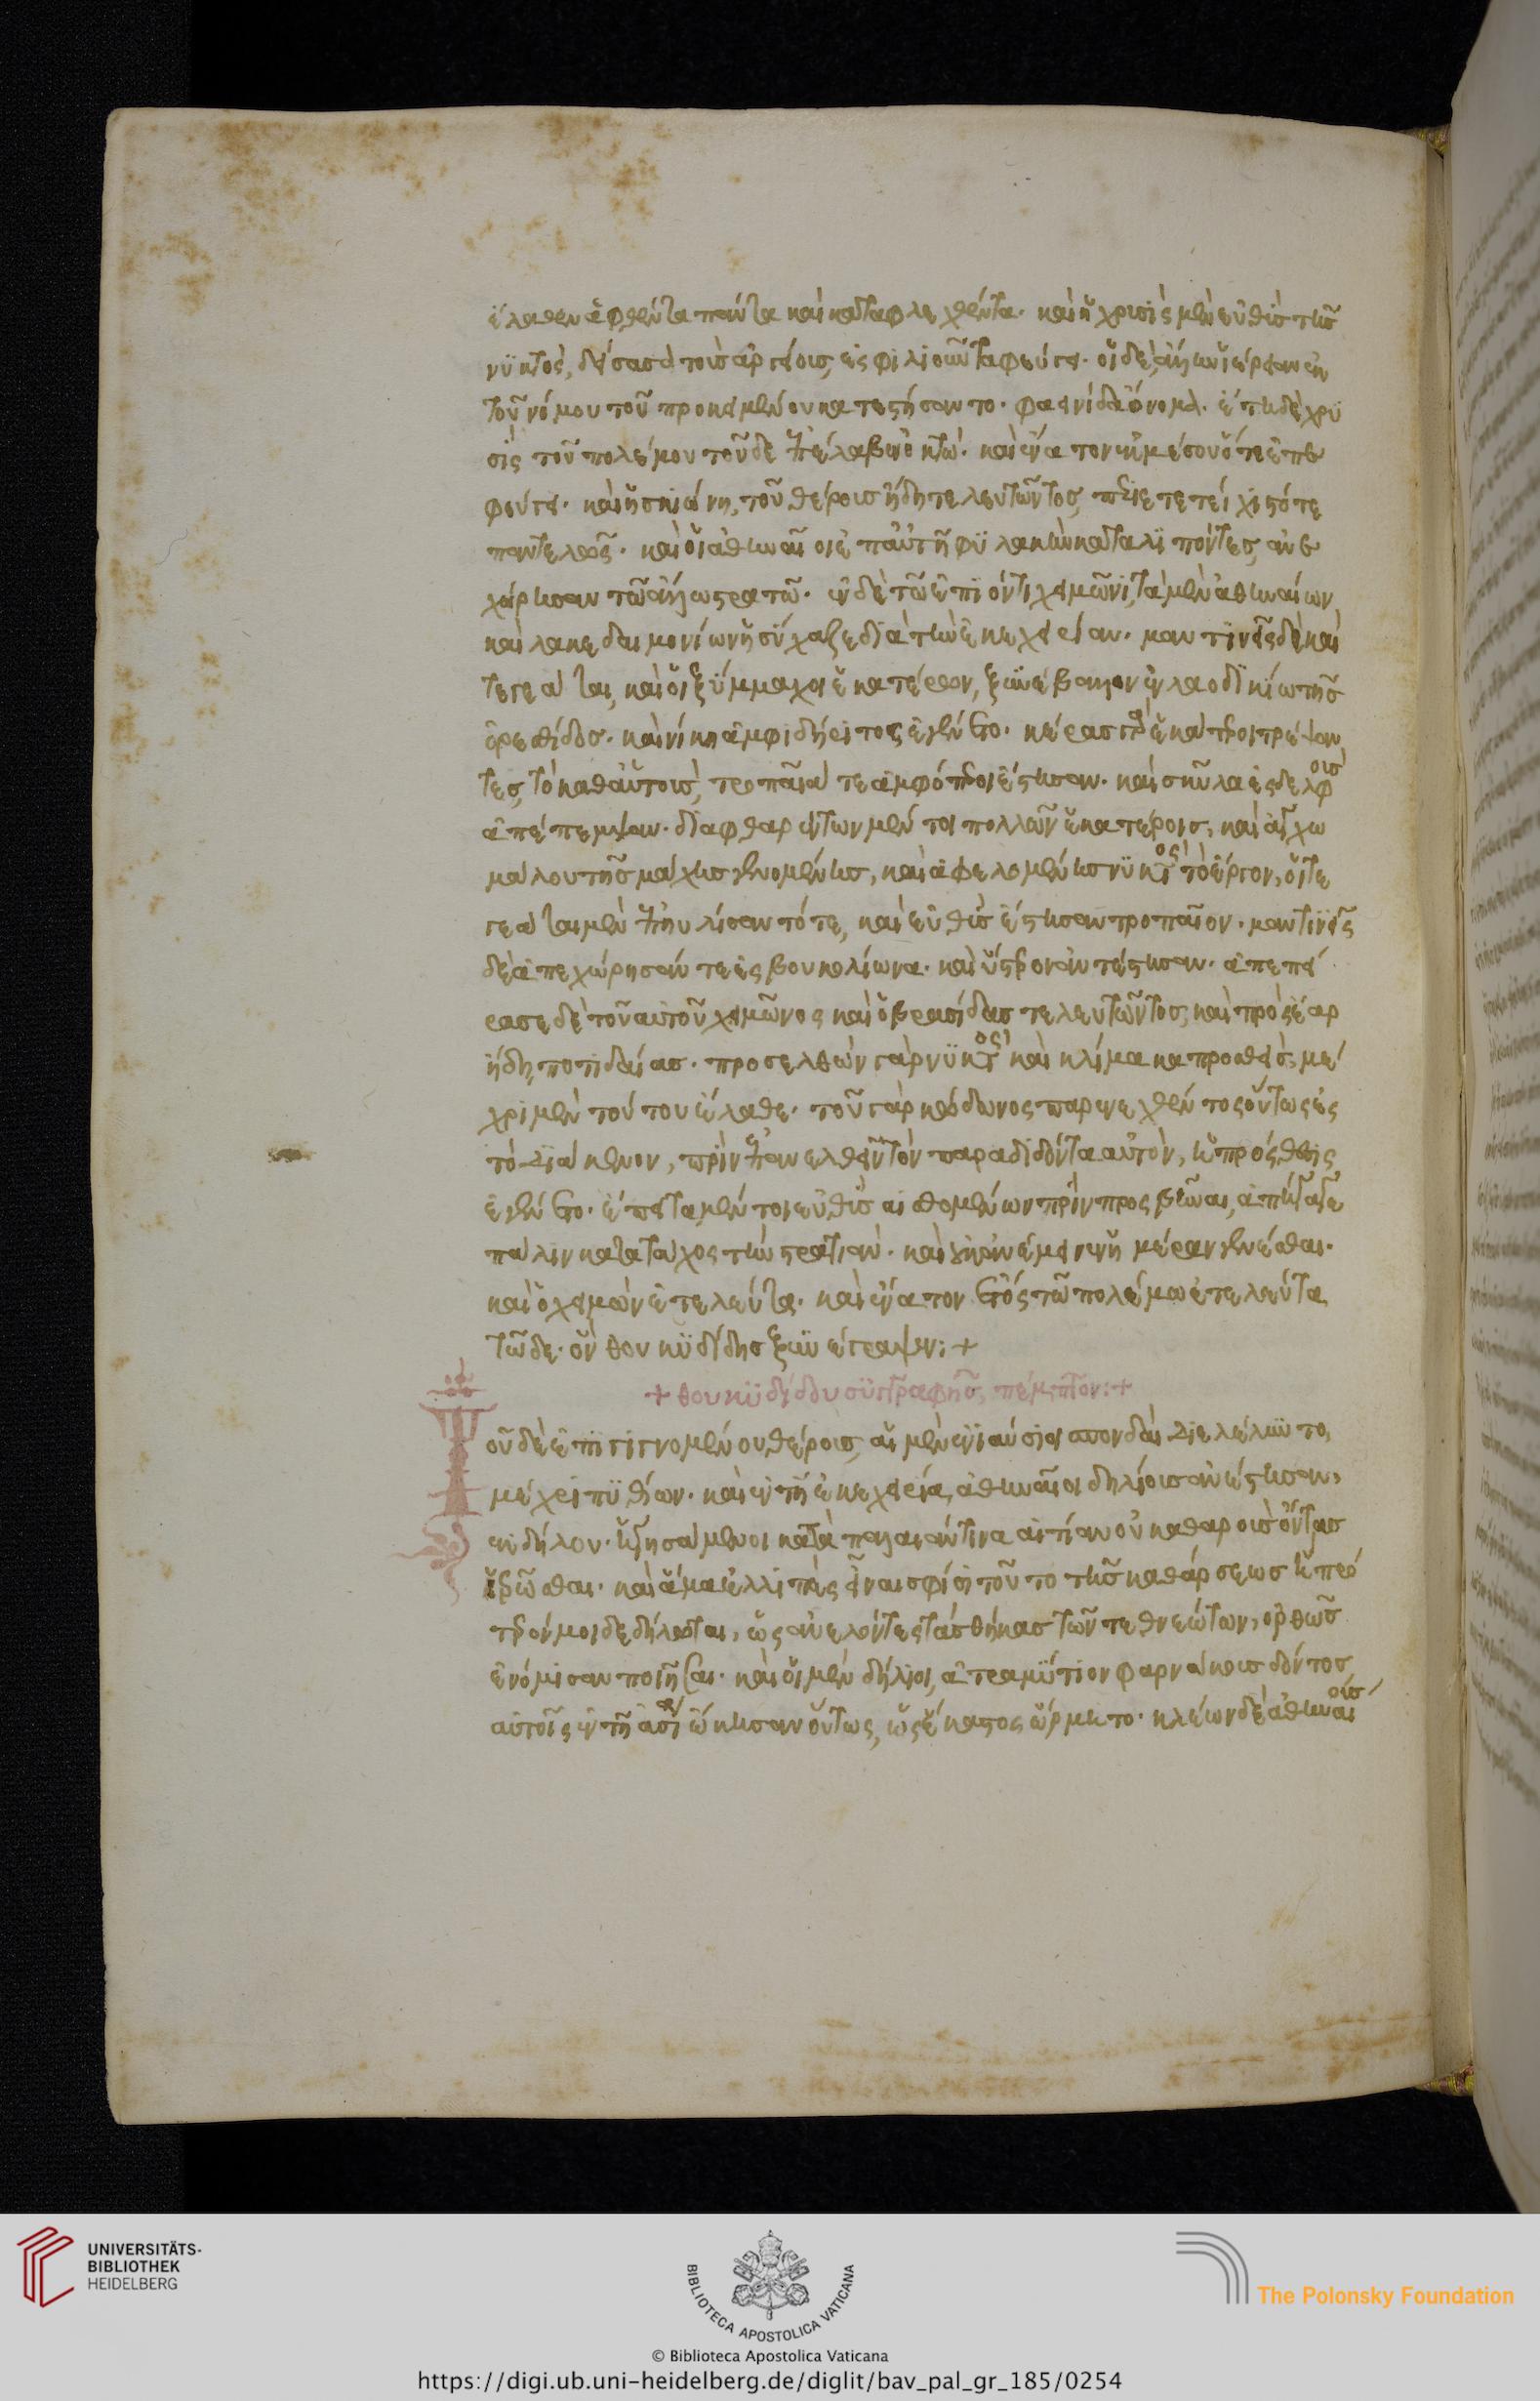 ἔλαθεν ἁφθέντα πάντα καὶ καταφλεχθέντα. καὶ ἡ χρυσὶς μὲν εὐθὺς τῆς
νυκτὸς, δείσασα τοὺς ἀργείους, ἐς φιλιοῦντα φεύγει. οἱ δὲ, ἄλλην ἱέρειαν ἐκ
τοῦ νόμου τοῦ προκειμένου κατεστήσαντο. φαεινίδα ὄνομα. ἔτη δὲ χρυ
σὶς τοῦ πολέμου τοῦδε ἐπέλαβεν ὀκτώ. καὶ ἔνατον ἐκ μέσου ὅτε ἐπε
φεύγει. καὶ ἡ σκιώνη, τοῦ θέρους ἤδη τελευτῶντος, περιετετείχιστό τε
παντελῶς. καὶ οἱ ἀθηναῖοι ἐπ αὐτῇ φυλακὴν καταλιπόντες, ἀνε
χώρησαν τῷ ἄλλῳ στρατῷ. ἐν δὲ τῷ ἐπιόντι χειμῶνι, τὰ μὲν ἀθηναίων
καὶ λακεδαιμονίων ἡσύχαζε διὰ τὴν ἐκεχειρίαν. μαντινεῖς δὲ καὶ
τεγεᾶται, καὶ οἱ ξύμμαχοι ἑκατέρων, ξυνέβαλον ἐν λαοδικίω τῆς
ὀρεσθίδος. καὶ νίκη ἀμφιδήριτος ἐγένετο. κέρας γὰρ ἑκάτεροι τρέψαν
τες, τὸ καθ αὑτοὺς, τροπαῖά τε ἀμφότεροι ἔστησαν. καὶ σκῦλα ἐς δελφοὺς
ἀπέπεμψαν. διαφθαρέντων μέν τοι πολλῶν ἑκατέροις, καὶ ἀγχω
μάλου τῆς μάχης γενομένης, καὶ ἀφελομένης νυκτὸς τὸ ἔργον, οἵ τε
γεᾶται μὲν ἐπηυλίσαντό τε, καὶ εὐθὺς ἔστησαν τροπαῖον. μαντινεῖς
δὲ ἀπεχώρησάν τε ἐς βουκολίωνα. καὶ ὕστερον ἀντέστησαν. ἀπεπεί
ρασε δὲ τοῦ αὐτοῦ χειμῶνος καὶ ὁ βρασίδας τελευτῶντος, καὶ πρὸς ἔαρ
ἤδη, ποτιδαίας. προσελθὼν γὰρ νυκτὸς καὶ κλίμακα προσθεὶς, μέ
χρι μὲν τούτου ἔλαθε. τοῦ γὰρ κώδωνος παρενεχθέντος οὕτως ἐς
τὸ διάκενον, πρὶν ἐπανελθεῖν τὸν παραδιδόντα αὐτὸν, ἡ πρόσθεσις
ἐγένετο. ἔπειτα μέν τοι εὐθὺς αἰσθομένων πρὶν προσβῆναι, ἀπήγαγε
πάλιν κατατάχος τὴν στρατιάν. καὶ οὐκ ἀνέμεινεν ἡμέραν γενέσθαι.
καὶ ὁ χειμὼν ἐτελεύτα. καὶ ἔνατον ἔτος τῷ πολέμῳ ἐτελεύτα
τῷδε. ὃν θουκυδίδης ξυνέγραψεν:+
+ θουκυδίδου συγγραφῆς, πέμπτον:+
τοῦ δὲ ἐπιγιγνομένου θέρους, αἱ μὲν ἐνιαύσιοι σπονδαὶ διελέλυντο,
μέχρι πυθίων. καὶ ἐν τῇ ἐκεχειρία, ἀθηναῖοι δηλίους ἀνέστησαν,
ἐκ δήλου. ἡγησάμενοι κατὰ παλαιάν τινα αἰτίαν οὐ καθαροὺς ὄντας
ἱδρῶσθαι. καὶ ἅμα ἐλλιπὲς εἶναι σφίσι τοῦτο τῆς καθάρσεως ἡ πρό
τερόν μοι δεδήλωται, ὡς ἀνελόντες τὰς θήκας τῶν τεθνεώτων, ὀρθῶς
ἐνόμισαν ποιῆσαι. καὶ οἱ μὲν δήλιοι, ἀτραμύτιον φαρνάκους δόντος
αὐτοῖς ἐν τῇ ἀσίᾳ ᾤκησαν οὕτως, ὡς ἕκαστος ὥρμητο. κλέων δὲ ἀθηναίους
UNIVERSITÄTS-
BIBLIOTHEK
HEIDELBERG
BIBLIOTECA APOSTOLICA VATICANA
The Polonsky Foundation
© Biblioteca Apostolica Vaticana
https://digi.ub.uni-heidelberg.de/diglit/bav_pal_gr_185/0254